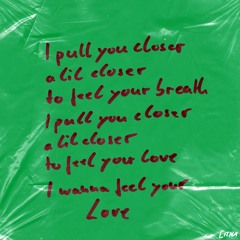 I pull you closer
a lil closer
to feel your breath
I pull you closer
a lil closer
to feel your love
I wanna feel your
Love
EITHA